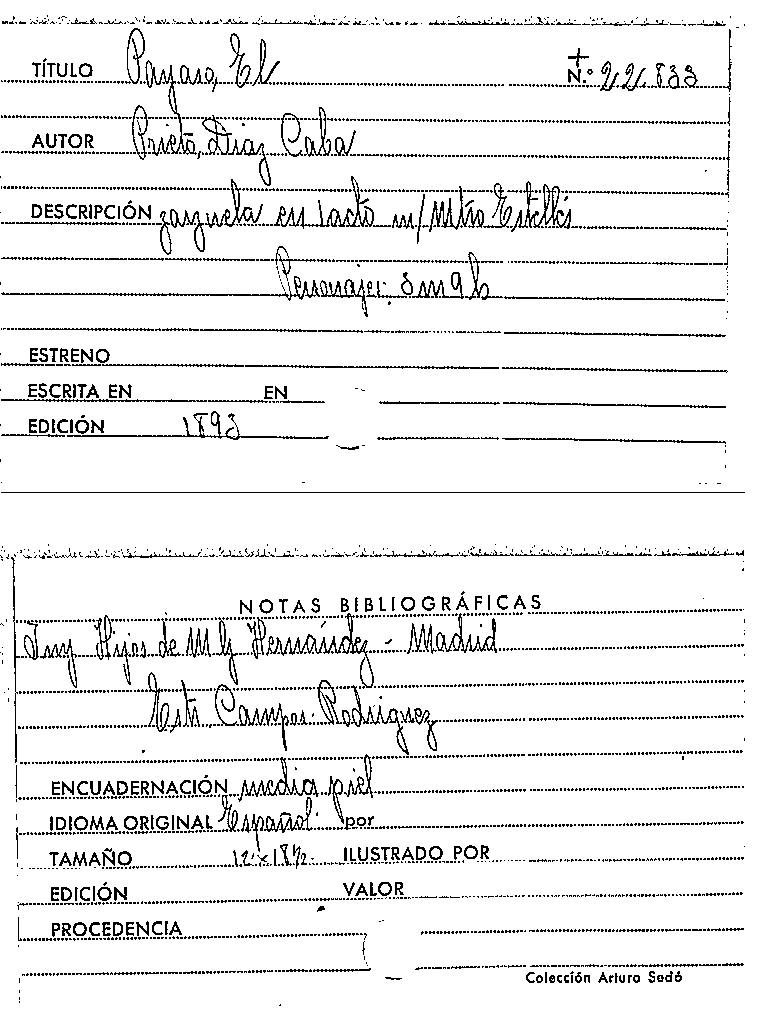 TÍTULO Payaso, El N.º 22.833
AUTOR Prieto, Diaz Caba
DESCRIPCIÓN zarzuela en 1 acto m/ Mtro Estellés
Personajes: 8 m 9 h
ESTRENO
ESCRITA EN EN
EDICIÓN 1893
NOTAS BIBLIOGRÁFICAS
Imp Hijos de M G Hernández - Madrid
Campos. Rodriguez
ENCUADERNACIÓN media piel
IDIOMA ORIGINAL Español. por
TAMAÑO 12 x 18½. ILUSTRADO POR
EDICIÓN VALOR
PROCEDENCIA
Colección Arturo Sedó